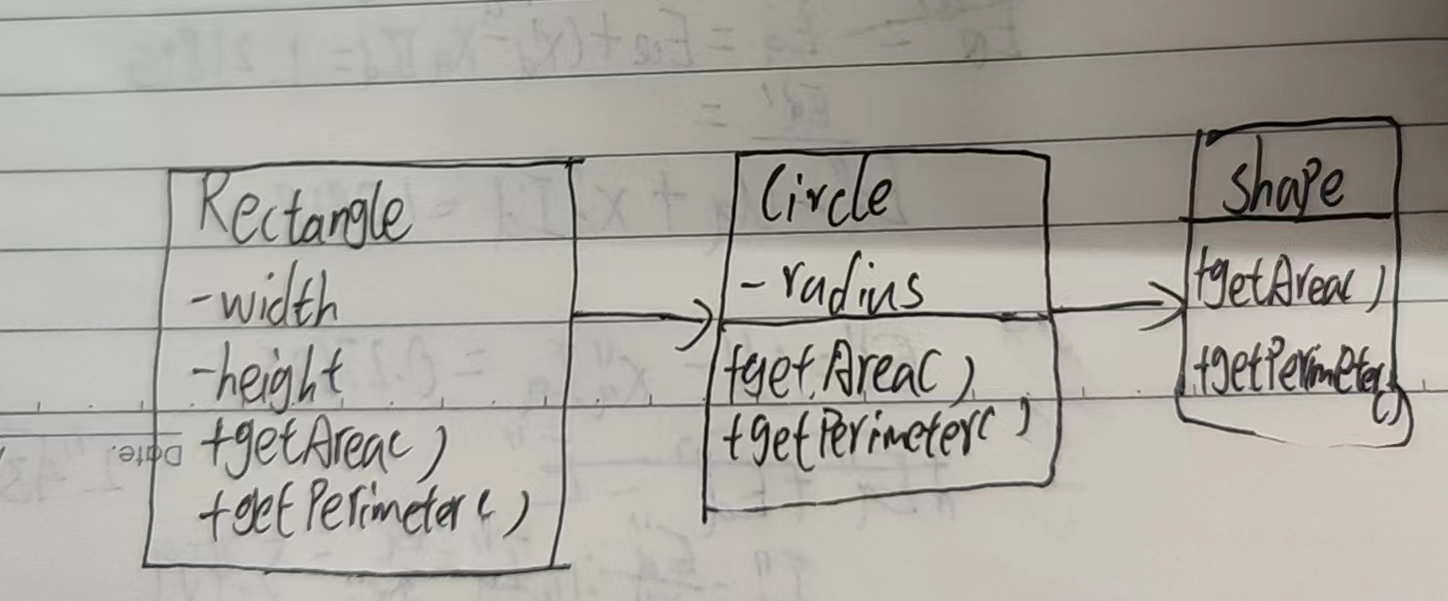 Rectangle
-width
-height
+getArea()
+getPerimeter()
Circle
-radius
+getArea()
+getPerimeter()
Shape
+getArea()
+getPerimeter()
Date.